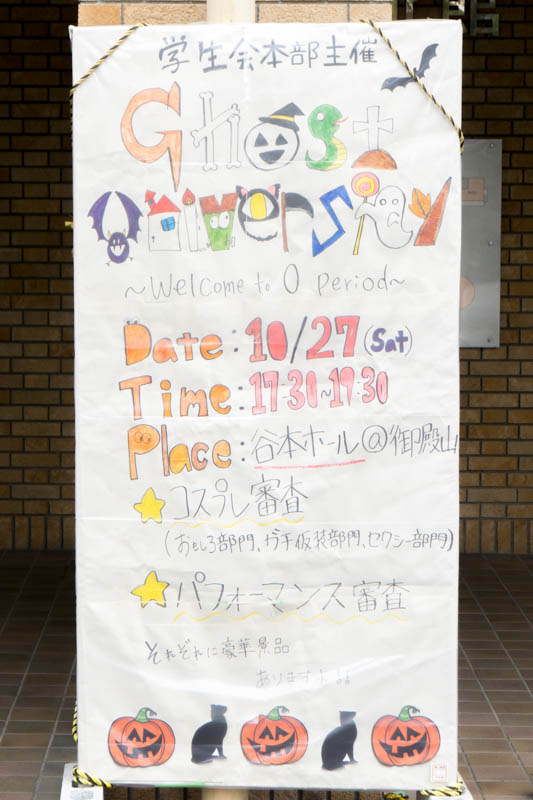 学生会本部主催
Ghost
Universal
~Welcome to O Period~
Date: 10/27 (Sat)
Time: 17:30~19:30
Place: 谷本ホール@御殿山
コスプレ審査
(おもしろ部門、ガチ仮装部門、セクシー部門)
パフォーマンス審査
それぞれに豪華景品
あります